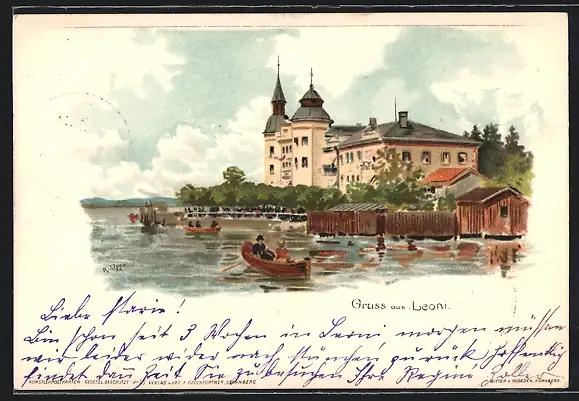 Gruss aus Leoni.
Liebe Marie!
Bin schon seit 3 Wochen in Leoni morgen müssen
wir leider wider nach München zurück hoffentlich
findet dan Zeit Sie zu besuchen Ihre Regine
KÜNSTLERPOSTKARTEN GESETZL. GESCHÜTZT VERLAG v. FRZ. X. OSTENFURTNER, STARNBERG
NÜRNBERG.